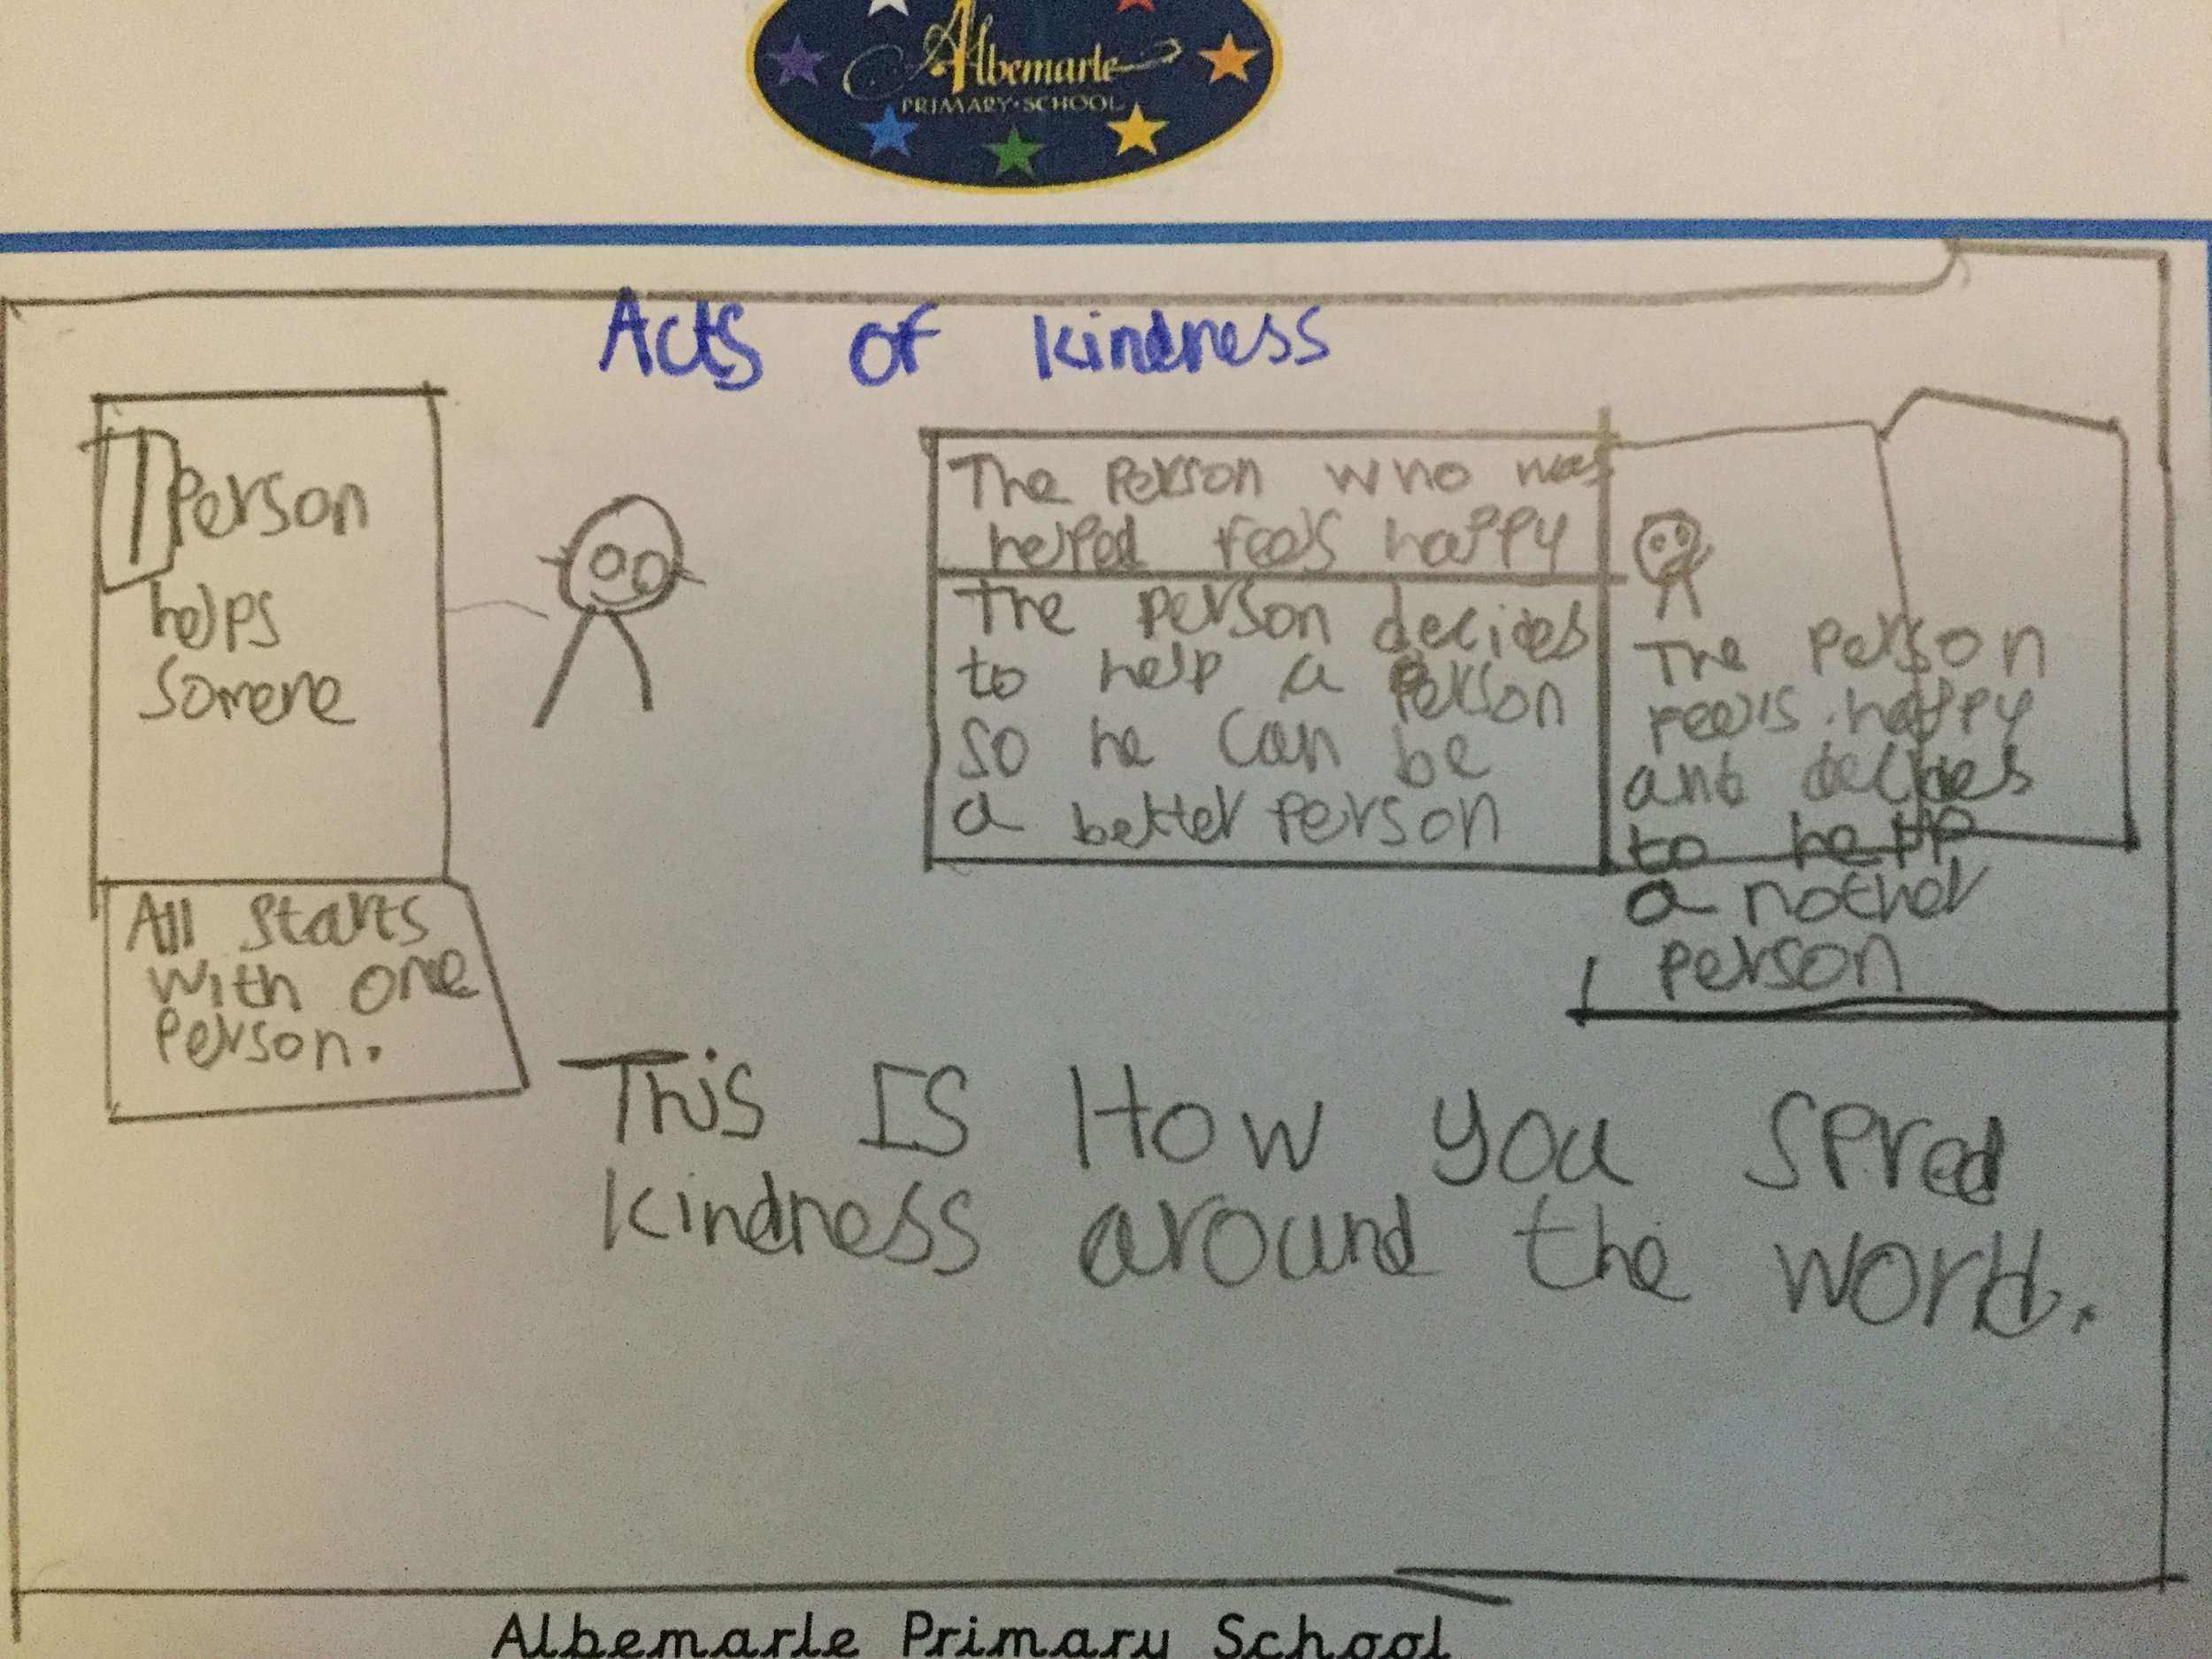 Albemarle
PRIMARY SCHOOL
Acts of kindness
1 Person
helps
Somene
All starts
with one
Person.
The Person who was
helped feels happy
The person decides
to help a person
so he can be
a better Person
The Person
feels happy
and decides
to help
a nother
person
This Is How you spred
kindness around the world.
Albemarle Primary School